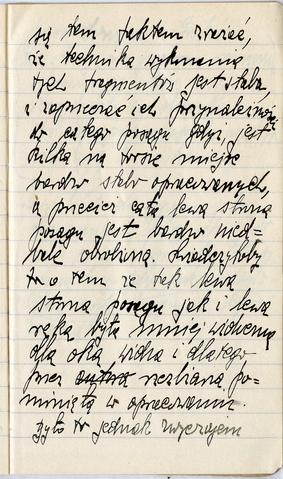 się tem faktem zrazić,
że technika wykonania
tych fragmentów jest słaba,
i zaprzeczać ich przynależność
do całego posągu gdyż jest
kilka na torsie miejsc
bardzo słabo opracowanych,
a przecież cała lewa strona
posągu jest bardzo nied-
bale obrobiona. Świadczyłoby
to o tem że tak lewa
strona posągu jak i lewa
ręka była mniej widoczną
dla oka widza i dlatego
przez autora rzeźbiarza po-
miniętą w opracowaniu.
Było to jednak zwyczajem